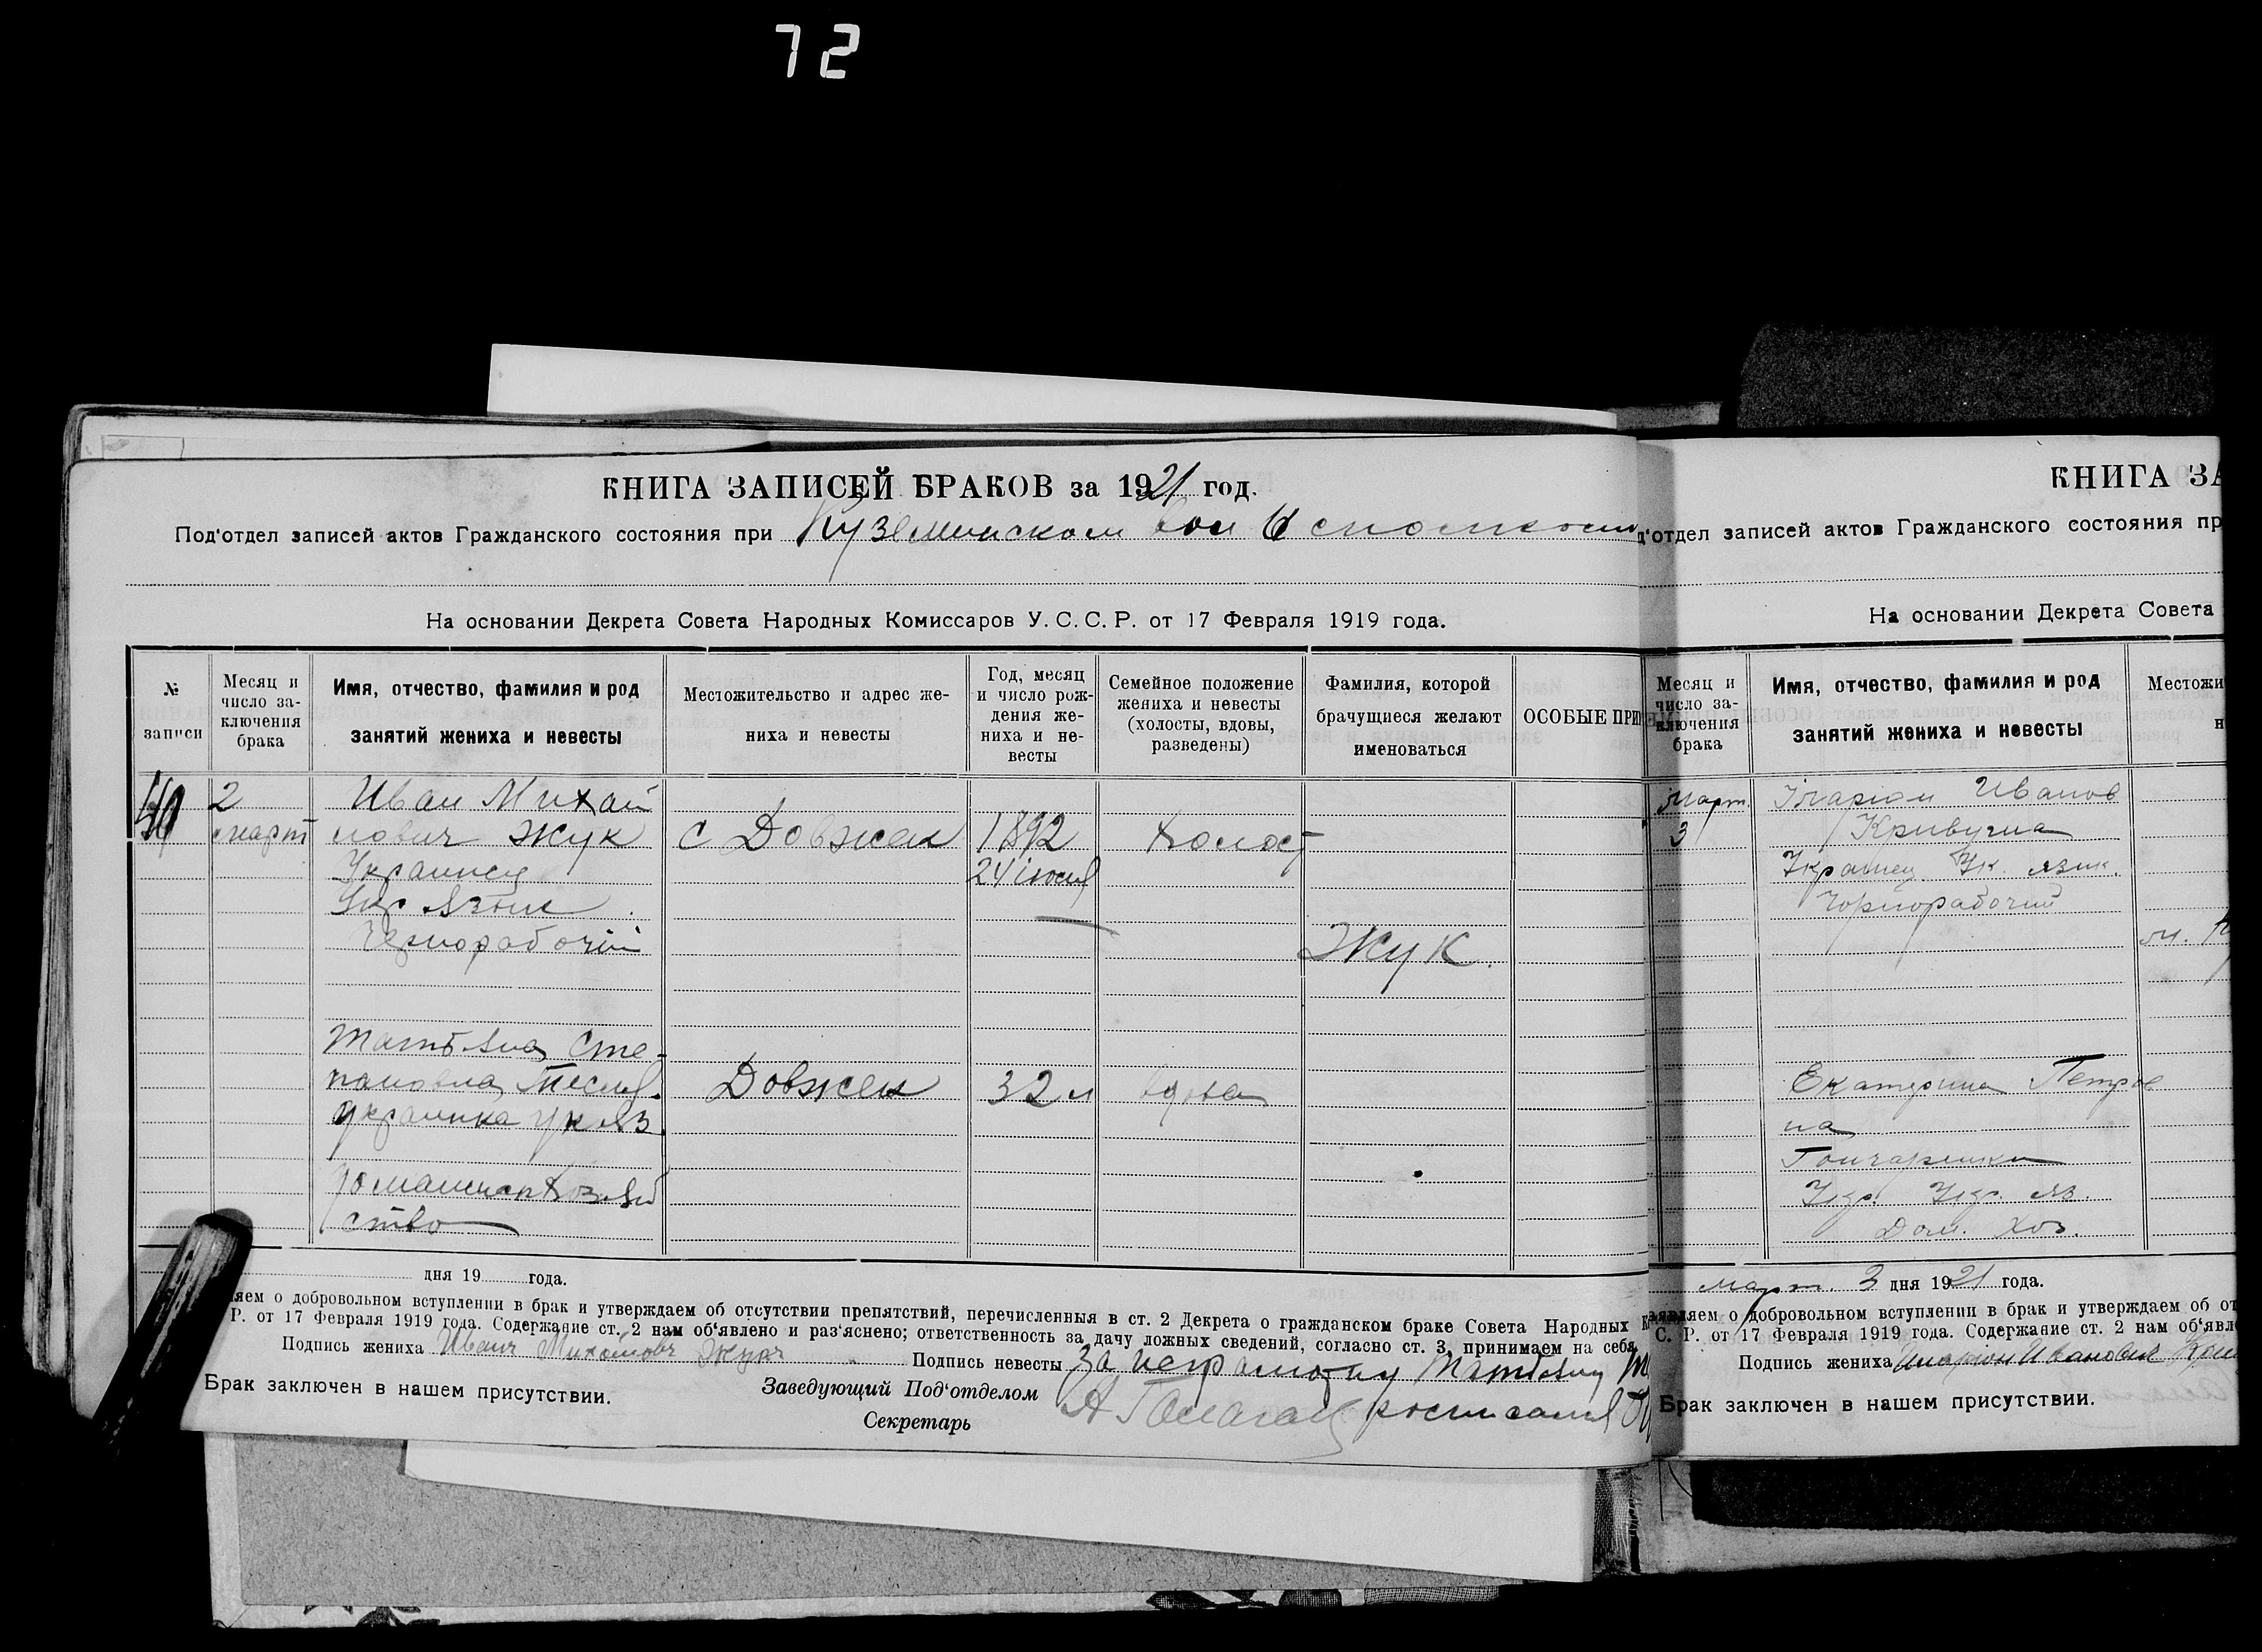 72
КНИГА ЗАПИСЕЙ БРАКОВ за 1921 год.
Под'отдел записей актов Гражданского состояния при Куземинском вол
На основании Декрета Совета Народных Комиссаров У. С. С. Р. от 17 Февраля 1919 года.
№ записи
Месяц и число за-
ключения
брака
Имя, отчество, фамилия и род
занятий жениха и невесты
Местожительство и адрес же-
ниха и невесты
Год, месяц
и число рож-
дения же-
ниха и не-
весты
Семейное положение
жениха и невесты
(холосты, вдовы,
разведены)
Фамилия, которой
брачущиеся желают
именоваться
ОСОБЫЕ ПРИ
2
март
Иван Михай
лович Жук
Украинец
Укр Язык
Чернорабочій
с Довжек
1892
24 июля
холост
Жук.
Татьяна Сте-
пановна
украинка ук яз.
домашнее хозяй
ство
Довжек
32 л
вдова
дня 19 года.
яем о добровольном вступлении в брак и утверждаем об отсутствии препятствий, перечисленныя в ст. 2 Декрета о гражданском браке Совета Народных
Р. от 17 Февраля 1919 года. Содержание ст. 2 нам об'явлено и раз'яснено; ответственность за дачу ложных сведений, согласно ст. 3, принимаем на себя.
Подпись жениха Иванъ Михайловъ Жукъ Подпись невесты за неграмотну Татьяну
Брак заключен в нашем присутствии.
Заведующий Под'отделом
Секретарь
КНИГА ЗА
'отдел записей актов Гражданского состояния пр
На основании Декрета Совета
Месяц и
число за-
ключения
брака
Имя, отчество, фамилия и род
занятий жениха и невесты
Местожи
н
Март.
3
Іларіон Иванов
Кривуша
Украинец Ук. язик.
Чорнорабочий
м.
Екатерина Петров
на
Гончаренко
Укр. Укр. яз.
Дом. хоз.
март. 3 дня 1921 года.
аявляем о добровольном вступлении в брак и утверждаем об от
С. Р. от 17 Февраля 1919 года. Содержание ст. 2 нам об'явле
Подпись жениха Иларіон Иванович
Брак заключен в нашем присутствии.